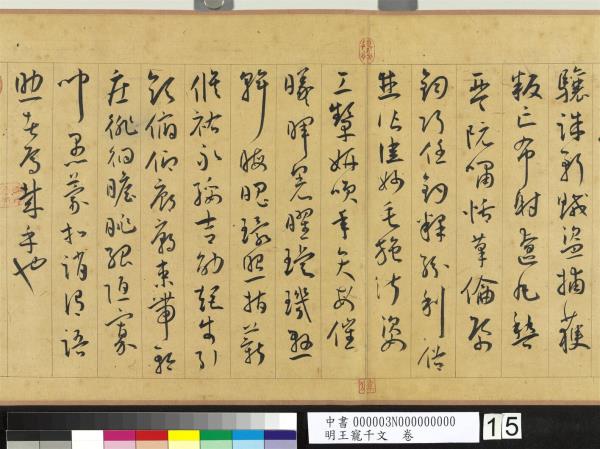 驤誅斬賊盜捕獲
叛亡布射遼丸嵇
琴阮嘯恬筆倫紙
鈞巧任釣釋紛利俗
並皆佳妙毛施淑姿
工顰妍笑年矢每催
曦暉朗曜璇璣懸
斡晦魄環照指薪
修祜永綏吉劭矩步引
領俯仰廊廟束帶矜
莊徘徊瞻眺孤陋寡
聞愚蒙等誚謂語
助者焉哉乎也
中書 000003N000000000
明王寵千文 卷
15